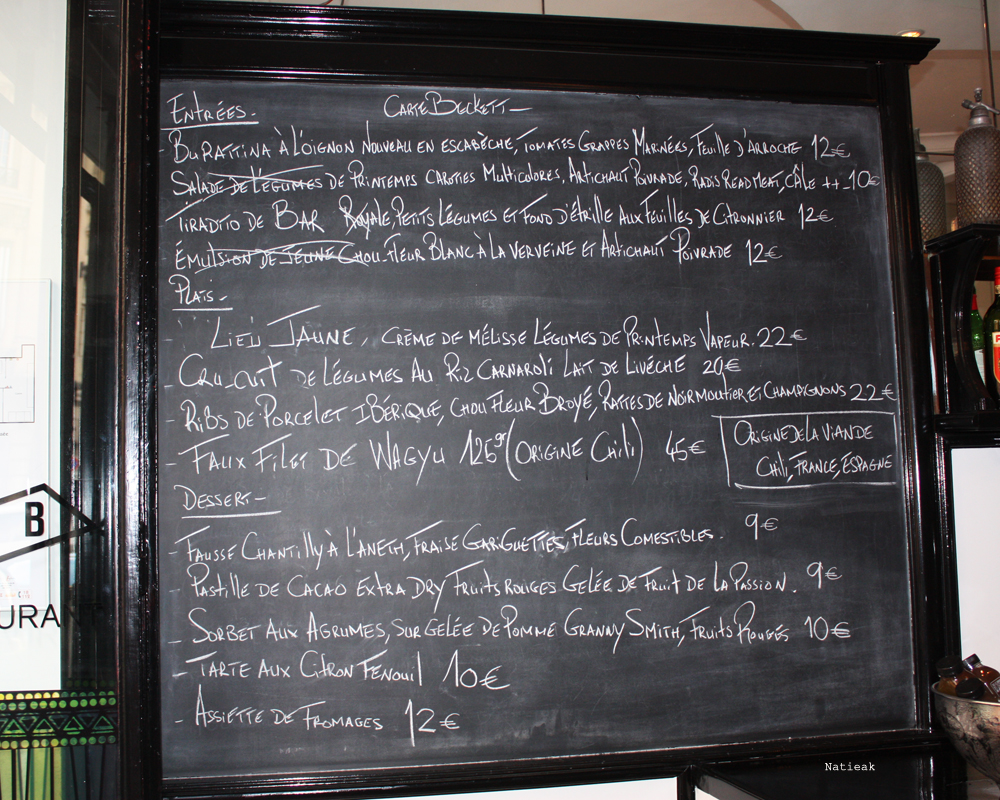 Entrées.
Carte Beckett
- Burattina à l'oignon nouveau en escabèche, tomates grappes marinées, feuille d'arroche 12€
Salade de légumes de printemps carottes multicolores, artichaut poivrade, radis read meat, câle ++ - 10€
Tiradito de bar Royale, petits légumes et fond d'étrille aux feuilles de citronnier 12€
- Émulsion de jeune chou fleur blanc à la verveine et artichaut poivrade 12€
Plats.
- Lieu jaune, crème de mélisse légumes de printemps vapeur. 22€
- Cru-cuit de légumes au riz carnaroli lait de livèche 20€
- Ribs de porcelet ibérique, chou fleur broyé, rattes de Noirmoutier et champignons 22€
- Faux filet de Wagyu 125gr (origine Chili) 45€
Origine de la viande
Chili, France, Espagne
Dessert -
- Fausse chantilly à l'aneth, fraise gariguettes, fleurs comestibles. 9€
- Pastille de cacao extra dry fruits rouges gelée de fruit de la passion. 9€
- Sorbet aux agrumes, sur gelée de pomme Granny Smith, fruits rougés 10€
- Tarte aux citron fenouil 10€
- Assiette de fromages 12€
B
URA
Natieak